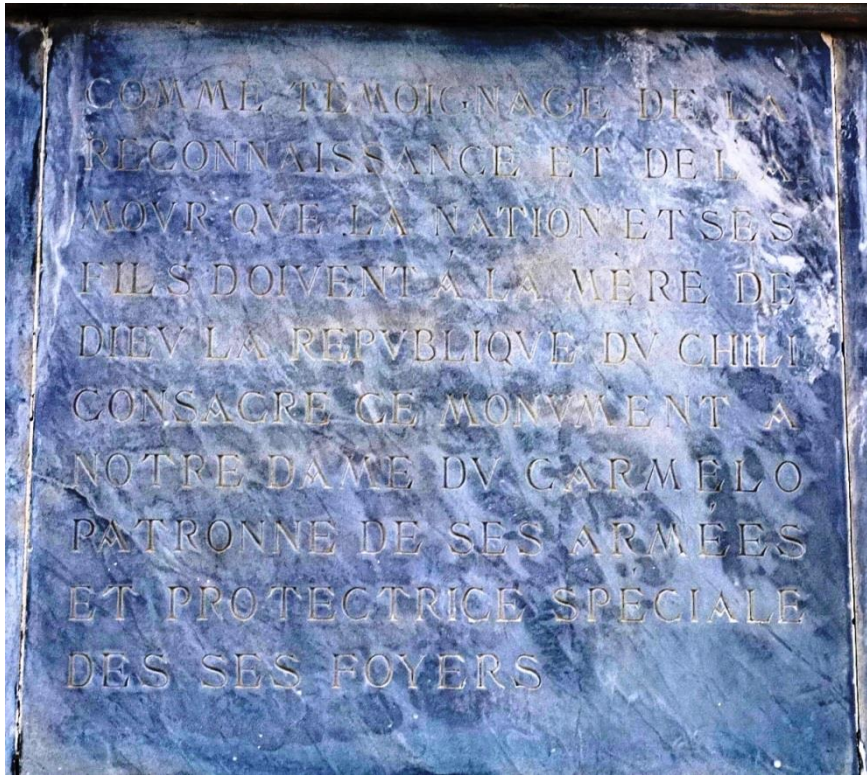 COMME TEMOIGNAGE DE LA
RECONNAISSANCE ET DE L A-
MOVR QVE LA NATION ET SES
FILS DOIVENT À LA MÈRE DE
DIEV LA REPVBLIQVE DV CHILI
CONSACRE CE MONVMENT A
NOTRE DAME DV CARMELO
PATRONNE DE SES ARMÉES
ET PROTECTRICE SPÉCIALE
DES SES FOYERS